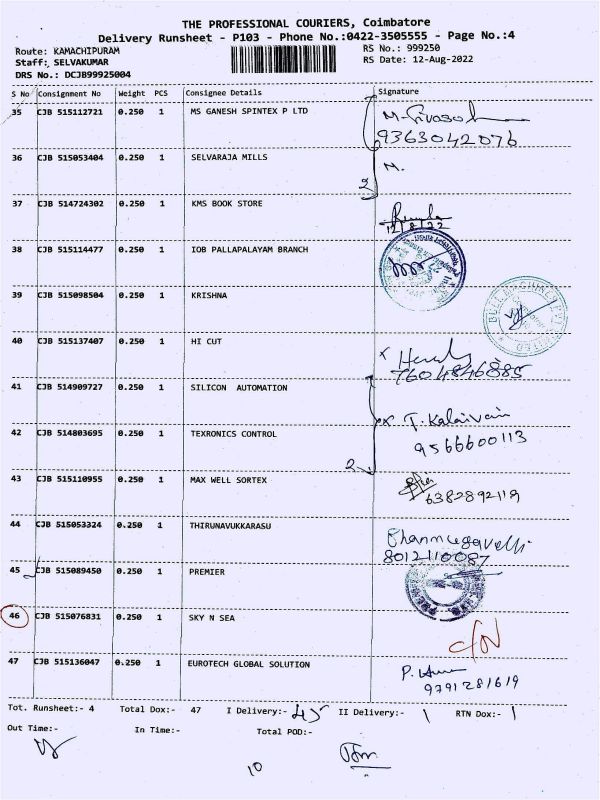 THE PROFESSIONAL COURIERS, Coimbatore
Delivery Runsheet - P103 - Phone No.:0422-3505555 - Page No.:4
Route: KAMACHIPURAM RS No.: 999250
Staff: SELVAKUMAR RS Date: 12-Aug-2022
DRS No.: DCJB99925004
S No Consignment No Weight PCS Consignee Details Signature
35 CJB 515112721 0.250 1 MS GANESH SPINTEX P LTD
9363042076
36 CJB 515053404 0.250 1 SELVARAJA MILLS M.
2
37 CJB 514724302 0.250 1 KMS BOOK STORE
12/8/22
38 CJB 515114477 0.250 1 IOB PALLAPALAYAM BRANCH
39 CJB 515098504 0.250 1 KRISHNA
40 CJB 515137407 0.250 1 HI CUT
7604846885
41 CJB 514909727 0.250 1 SILICON AUTOMATION
T. Kalaivani
42 CJB 514803695 0.250 1 TEXRONICS CONTROL 9566600113
2
43 CJB 515110955 0.250 1 MAX WELL SORTEX
6382892119
44 CJB 515053324 0.250 1 THIRUNAVUKKARASU
8012110087
45 CJB 515089450 0.250 1 PREMIER
46 CJB 515076831 0.250 1 SKY N SEA
47 CJB 515136047 0.250 1 EUROTECH GLOBAL SOLUTION
9791281619
Tot. Runsheet:- 4 Total Dox:- 47 I Delivery:- 45 II Delivery:- 1 RTN Dox:- 1
Out Time:- In Time:- Total POD:-
10